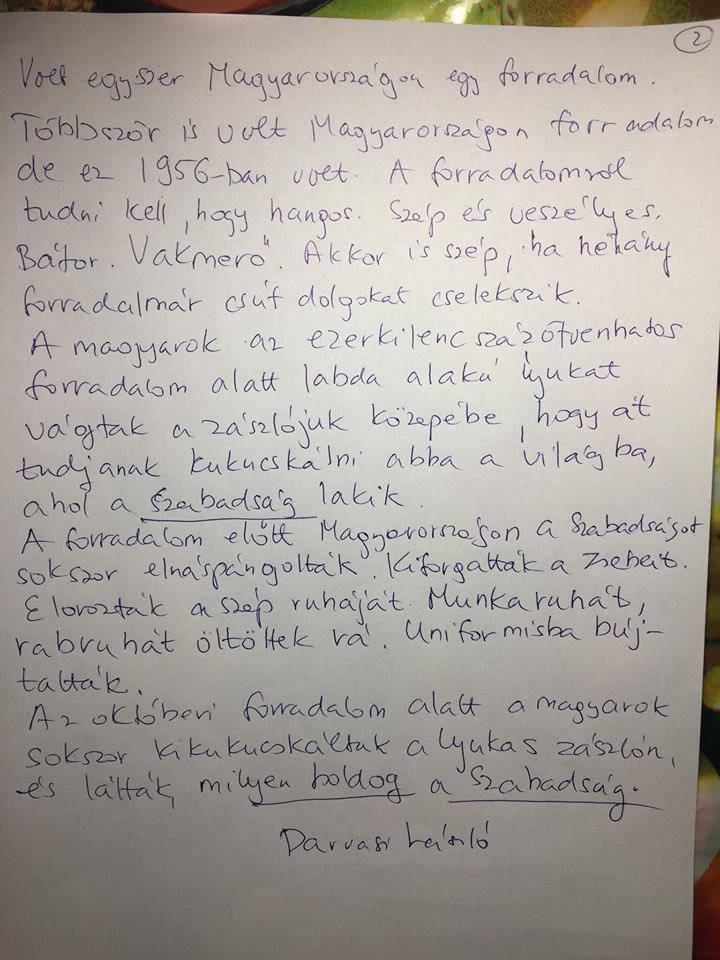 2
Volt egyszer Magyarországon egy forradalom.
Többször is volt Magyarországon forradalom
de ez 1956-ban volt. A forradalomról
tudni kell, hogy hangos. Szép és veszélyes.
Bátor. Vakmerő. Akkor is szép, ha néhány
forradalmár csúf dolgokat cselekszik.
A magyarok az ezerkilencszázötvenhatos
forradalom alatt labda alakú lyukat
vágtak a zászlójuk közepébe, hogy át
tudjanak kukucskálni abba a világba,
ahol a Szabadság lakik.
A forradalom előtt Magyarországon a Szabadságot
sokszor elnáspángolták. Kiforgatták a zsebeit.
Elorozták a szép ruháját. Munkaruhát,
rabruhát öltöttek rá. Uniformisba búj-
tatták.
Az októberi forradalom alatt a magyarok
sokszor kikukucskáltak a lyukas zászlón,
és látták, milyen boldog a Szabadság.
Darvasi László